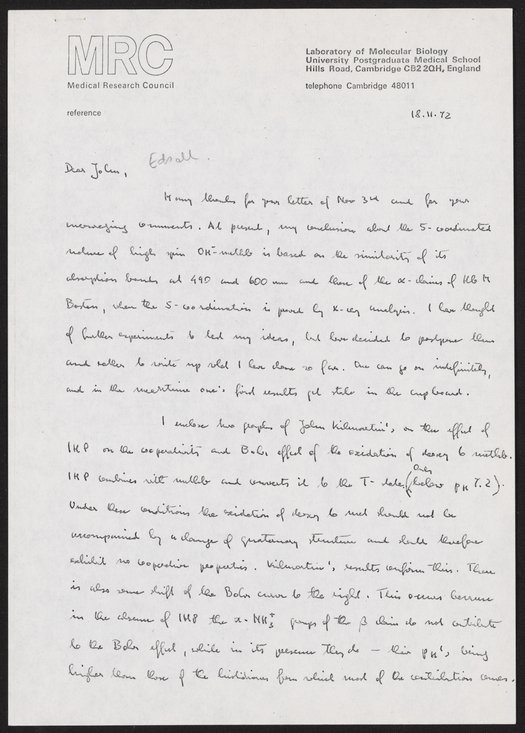 MRC
Medical Research Council
Laboratory of Molecular Biology
University Postgraduate Medical School
Hills Road, Cambridge CB2 2QH, England
telephone Cambridge 48011
reference
18.11.72
Dear John,
Edsall.
Many thanks for your letter of Nov 3rd and for your
encouraging comments. At present, my conclusion about the 5-coordinated
nature of high spin OH⁻ methb is based on the similarity of its
absorption bands at 490 and 600 nm and those of the α-chains of Hb M
Boston, where the 5-coordination is proved by X-ray analysis. I have thought
of further experiments to test my ideas, but have decided to postpone them
and rather to write up what I have done so far. One can go on indefinitely,
and in the meantime one's first results get stale in the cupboard.
I enclose two graphs of John Kilmartin's, on the effect of
IHP on the cooperativity and Bohr effect of the oxidation of deoxy to methb.
IHP combines with methb and converts it to the T-state (only below pH 7.2).
Under these conditions the oxidation of deoxy to met should not be
accompanied by a change of quaternary structure and should therefore
exhibit no cooperative properties. Kilmartin's results confirm this. There
is also some shift of the Bohr curve to the right. This occurs because
in the absence of IHP the α-NH₃⁺ groups of the β chain do not contribute
to the Bohr effect, while in its presence they do — their pH's being
higher than those of the histidines from which most of the contribution comes.